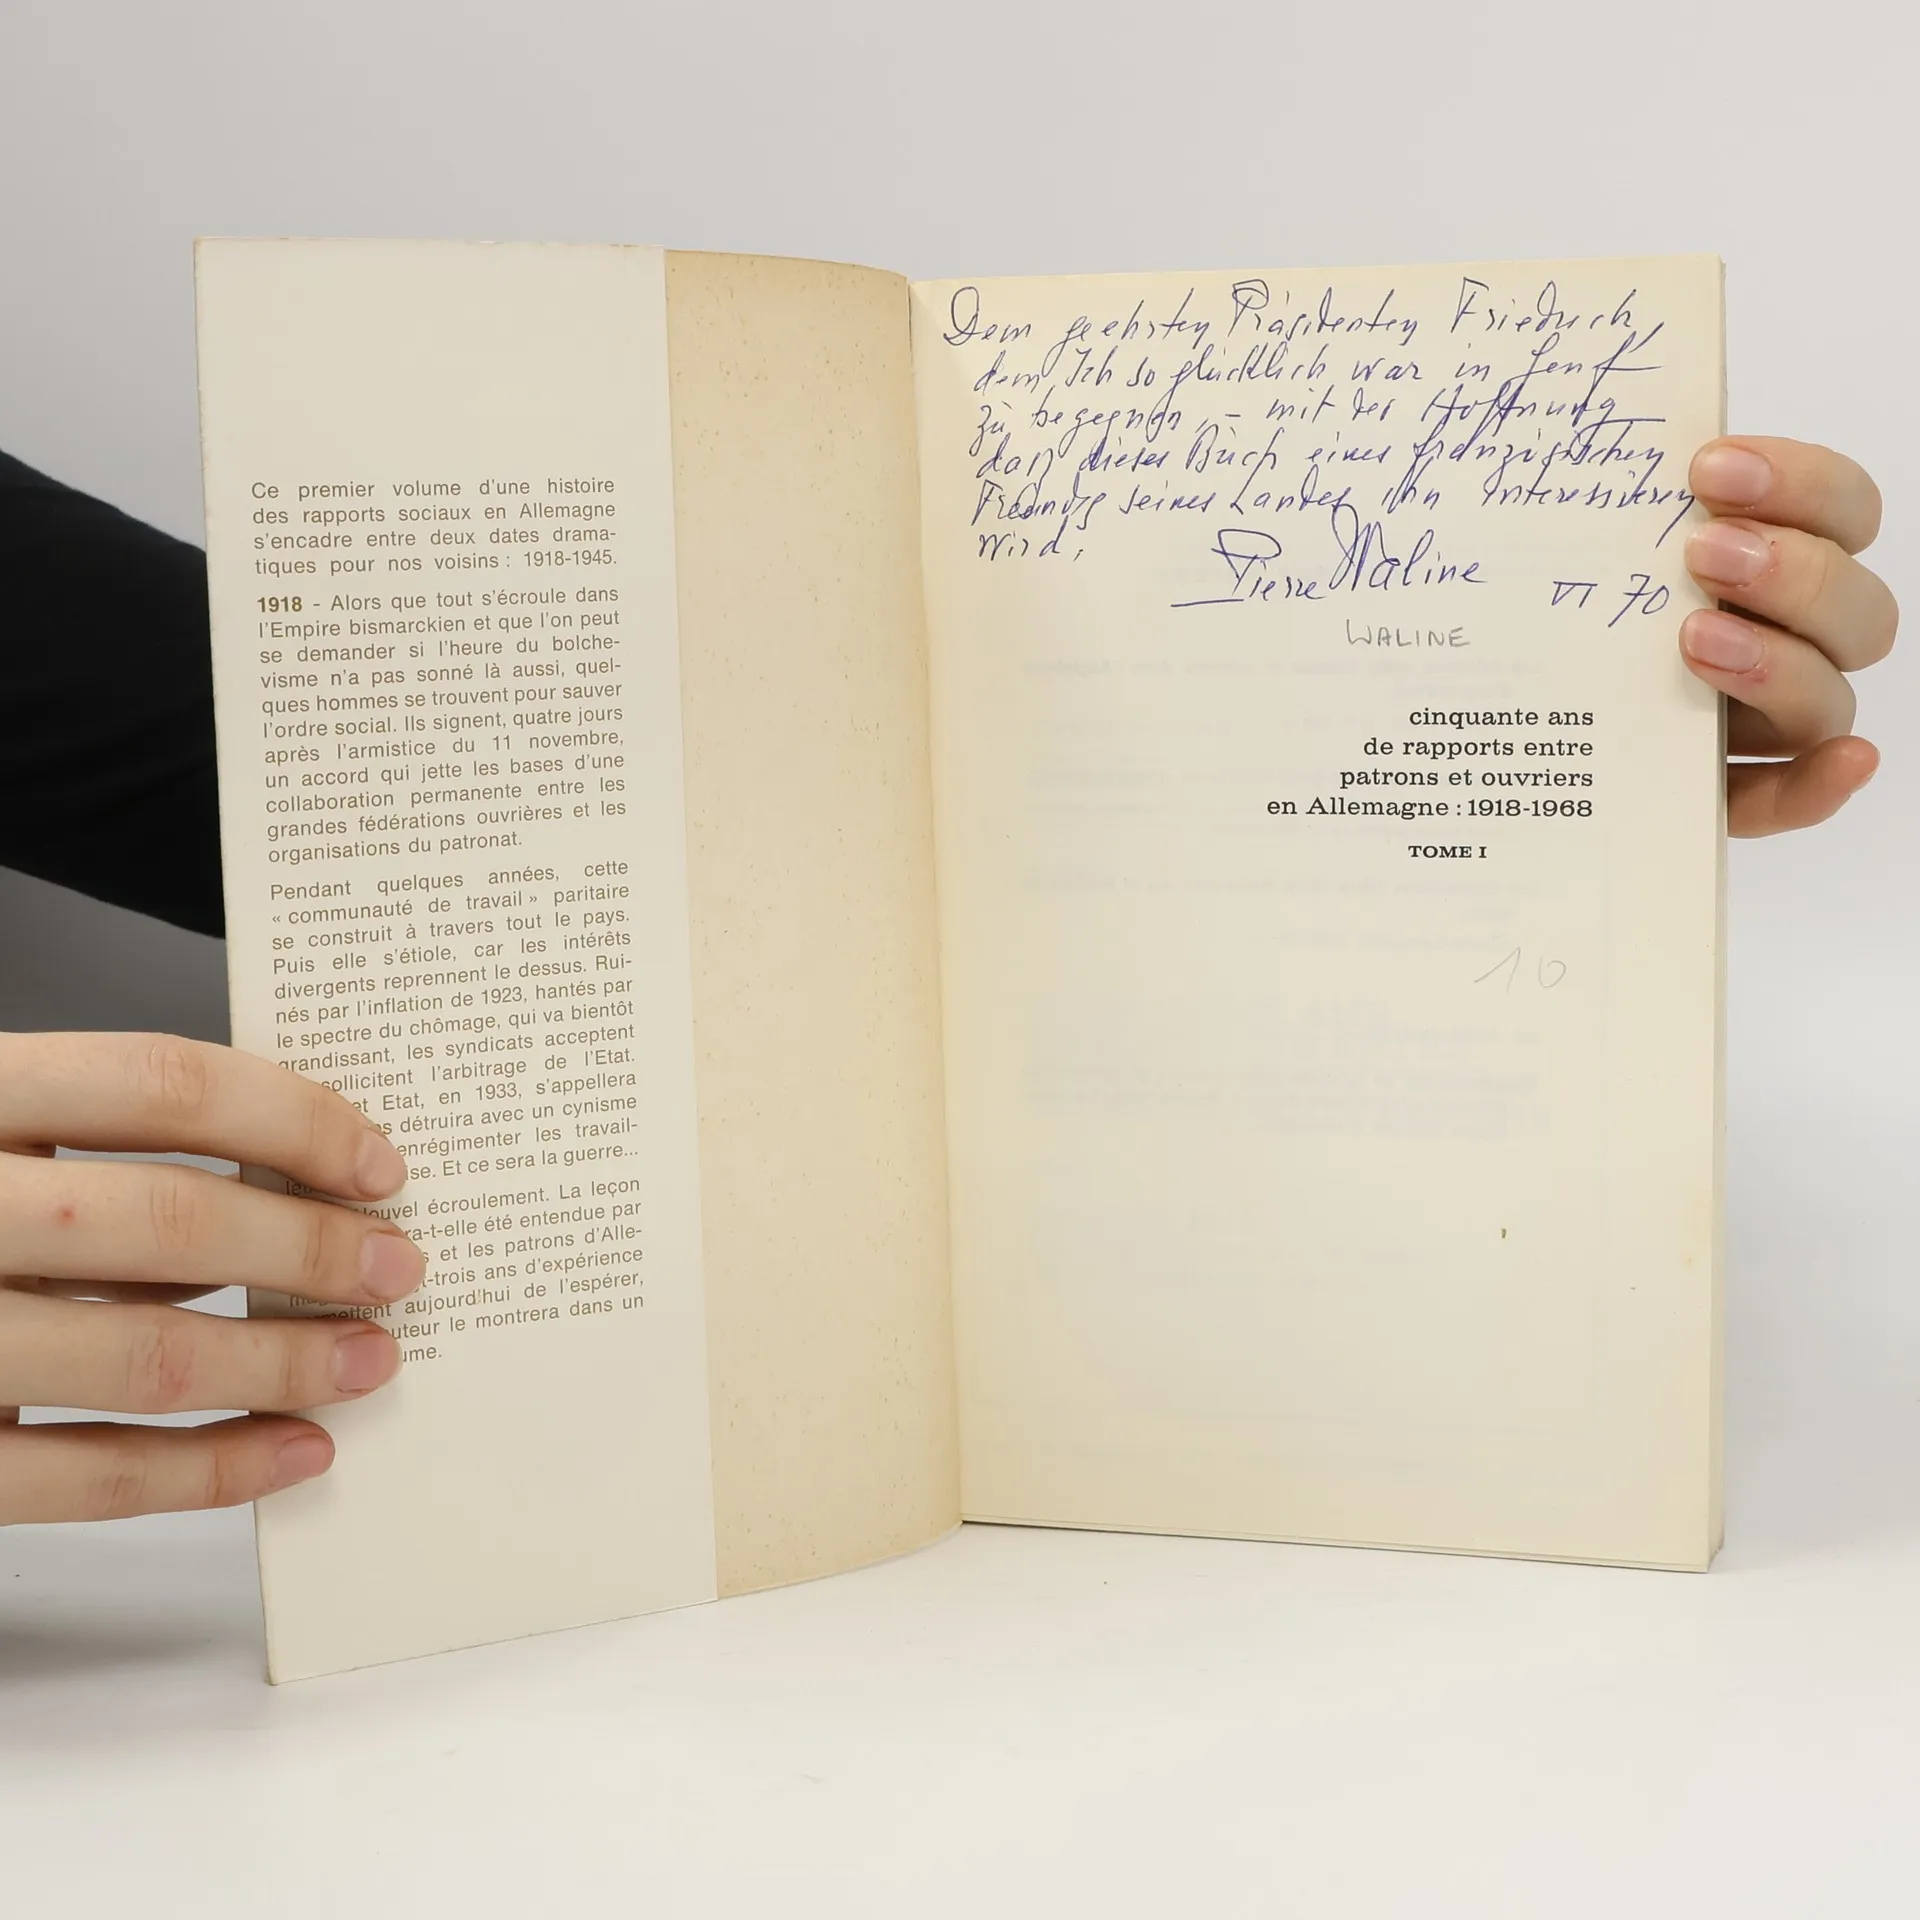 Ce premier volume d'une histoire
des rapports sociaux en Allemagne
s'encadre entre deux dates drama-
tiques pour nos voisins : 1918-1945.
1918 - Alors que tout s'écroule dans
l'Empire bismarckien et que l'on peut
se demander si l'heure du bolche-
visme n'a pas sonné là aussi, quel-
ques hommes se trouvent pour sauver
l'ordre social. Ils signent, quatre jours
après l'armistice du 11 novembre,
un accord qui jette les bases d'une
collaboration permanente entre les
grandes fédérations ouvrières et les
organisations du patronat.
Pendant quelques années, cette
« communauté de travail » paritaire
se construit à travers tout le pays.
Puis elle s'étiole, car les intérêts
divergents reprennent le dessus. Rui-
nés par l'inflation de 1923, hantés par
le spectre du chômage, qui va bientôt
grandissant, les syndicats acceptent
sollicitent l'arbitrage de l'Etat.
et Etat, en 1933, s'appellera
détruira avec un cynisme
enrégimenter les travail-
ise. Et ce sera la guerre...
ouvel écroulement. La leçon
ra-t-elle été entendue par
et les patrons d'Alle-
t-trois ans d'expérience
mettent aujourd'hui de l'espérer,
uteur le montrera dans un
ume.
Dem geehrten Präsidenten Friedrich,
dem Ich so glücklich war in Genf
zu begegnen, - mit der Hoffnung
daß dieses Buch eines französischen
Freunds seines Landes ihn interessieren
wird,
Pierre Waline VI 70
WALINE
cinquante ans
de rapports entre
patrons et ouvriers
en Allemagne : 1918-1968
TOME I
10